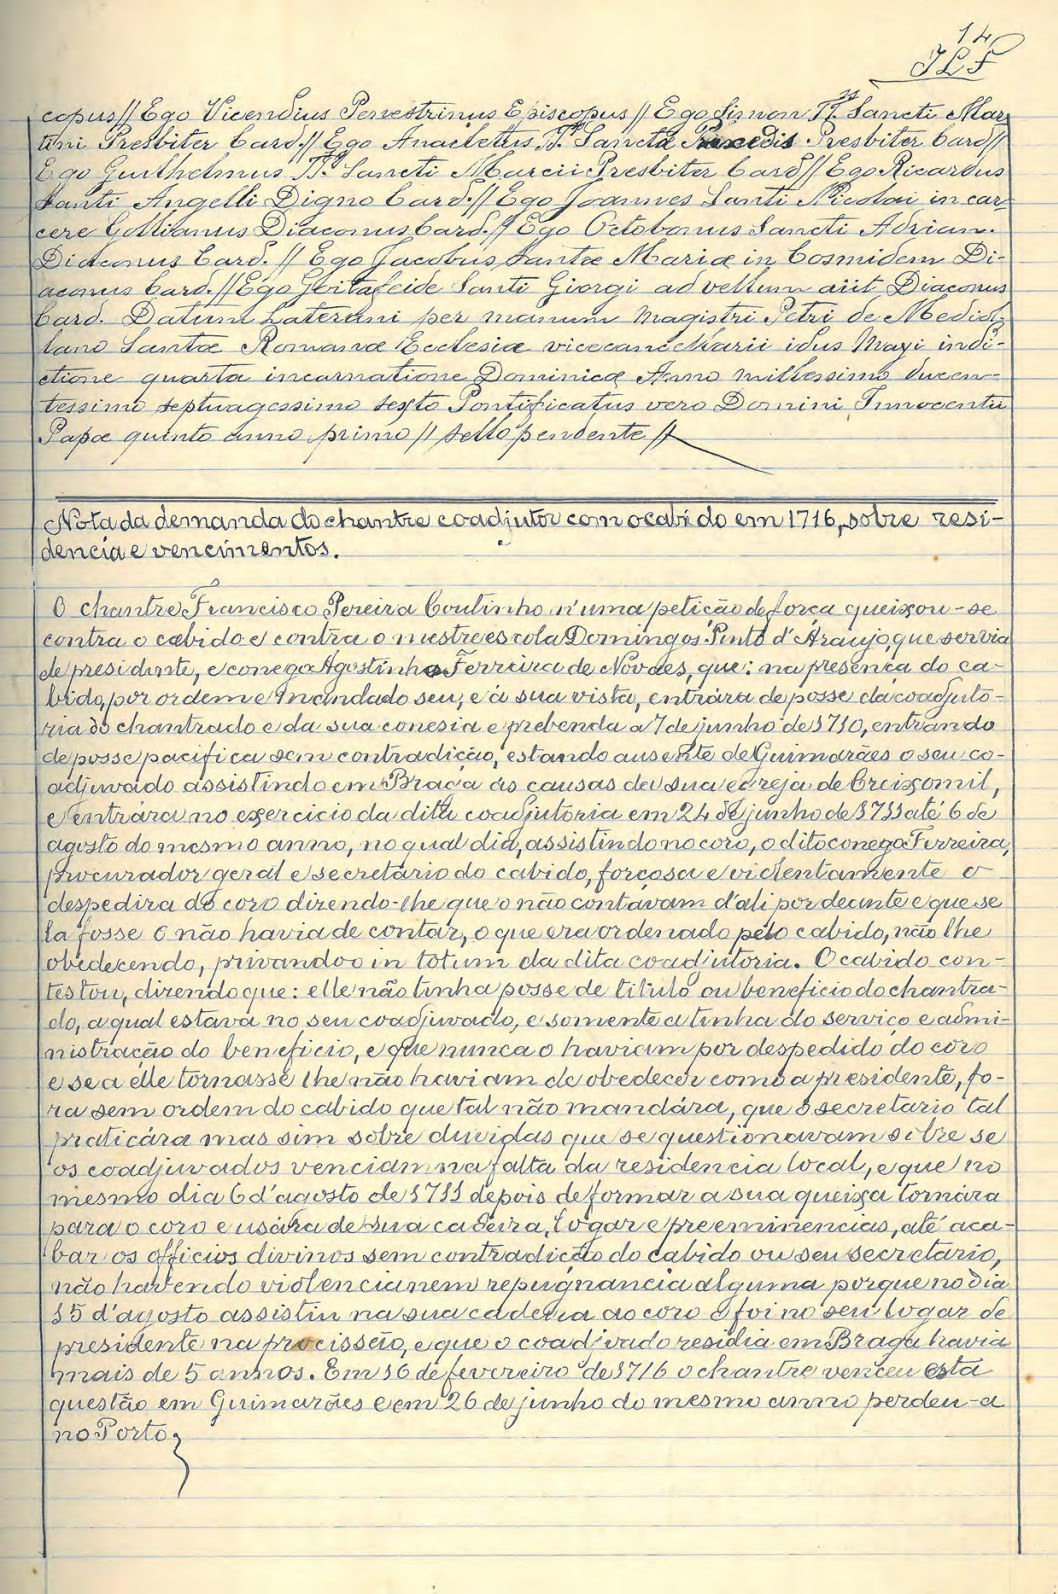 14
JLF
copus // Ego Vicendius Penestrinus Episcopus // Ego Simon Tt. Sancti Mar-
tini Presbiter Card. // Ego Anacletus Tt. Sancta Praxedis Presbiter Card //
Ego Guithelmus Tt. Sancti Marcii Presbiter Card // Ego Ricardus
Santi Angelli Digno Card. // Ego Joannes Santi Nicolai in car-
cere Gollianus Diaconus Card. // Ego Octobonus Sancti Adrian.
Diaconus Card. // Ego Jacobus Santæ Mariæ in Cosmidem Di-
aconus Card. // Ego Santi Giorgi ad vellum aiit Diaconus
Card. Datum Laterani per manum Magistri Petri de Medio-
lano Santæ Romanæ Ecclesiæ vicecancellarii idus Mayi indi-
ctione quarta incarnatione Dominicæ Anno millessimo ducen-
tessimo septuagessimo sexto Pontificatus vero Domini Innocentii
Papæ quinto anno primo // sello pendente //
Nota da demanda do chantre coadjutor com o cabido em 1716, sobre resi-
dencia e vencimentos.
O chantre Francisco Pereira Coutinho n'uma petição de força queixou-se
contra o cabido e contra o mestre escola Domingos Pinto d'Araujo, que servia
de presidente, e conego Agostinho Ferreira de Novaes, que: na presença do ca-
bido, por ordem e mandado seu, e á sua vista, entrára de posse da coadjuto-
ria do chantrado e da sua conesia e prebenda a 7 de junho de 1710, entrando
de posse pacifica sem contradição, estando ausente de Guimarães o seu co-
adjuvado assistindo em Braga ás causas da sua egreja de Creixomil,
e entrára no exercicio da dita coadjutoria em 24 de junho de 1711 até 6 de
agosto do mesmo anno, no qual dia, assistindo no coro, o dito conego Ferreira,
procurador geral e secretário do cabido, forçosa e violentamente o
despedira do coro dizendo-lhe que o não contavam d'ali por deante e que se
la fosse o não havia de contar, o que era ordenado pelo cabido, não lhe
obedecendo, privando o in totum da dita coadjutoria. O cabido con-
testou, dizendo que: elle não tinha posse de titulo ou beneficio do chantra-
do, a qual estava no seu coadjuvado, e somente a tinha do serviço e admi-
nistração do beneficio, e que nunca o haviam por despedido do coro
e se a elle tornasse lhe não haviam de obedecer como a presidente, fo-
ra sem ordem do cabido que tal não mandára, que o secretario tal
praticára mas sim sobre duvidas que se questionavam sobre se
os coadjuvados venciam na falta da residencia local, e que no
mesmo dia 6 d'agosto de 1711 depois de formar a sua queixa tornára
para o coro e usára de sua cadeira, lugar e preeminencias, até aca-
bar os officios divinos sem contradicção do cabido ou seu secretario,
não havendo violencia nem repugnancia alguma porque no dia
15 d'agosto assistiu na sua cadeira ao coro e foi no seu logar de
presidente na procissão, e que o coadjvado residia em Braga havia
mais de 5 annos. Em 16 de fevereiro de 1716 o chantre venceu esta
questão em Guimarães e em 26 de junho do mesmo anno perdeu-a
no Porto.